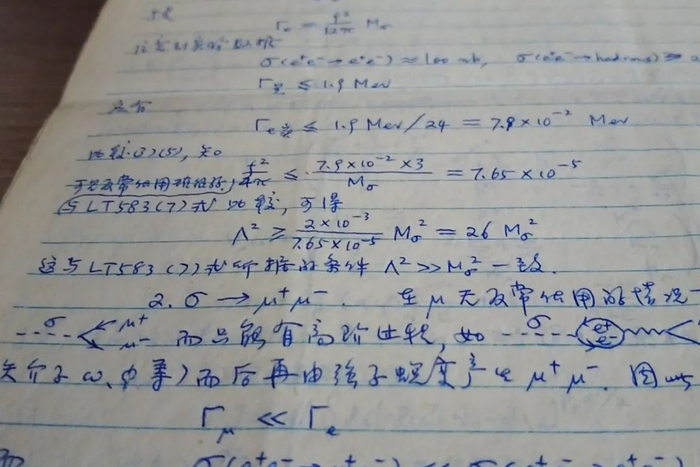 于是
Γe = f²/12π Mσ
σ(e⁺e⁻→e⁺e⁻) ≈ 100 nb, σ(e⁺e⁻→hadrons) ≈ 2
Γ总 ≤ 1.9 Mev
应有
Γe ≤ 1.9 Mev/24 = 7.9×10⁻² Mev
比较(3)(5), 知 f²/4π ≤ 7.9×10⁻²×3/Mσ = 7.65×10⁻⁵
与LT583(7)式比较, 可得
Λ² ≥ 2×10⁻³/7.65×10⁻⁵ Mσ² = 26 Mσ²
这与LT583(7)式所据的条件 Λ² >> Mσ² 一致.
2. σ → μ⁺μ⁻. 在μ无反常作用的情况
σ μ⁺ μ⁻ 而只能有高阶过程, 如 σ e⁺ e⁻
矢介子ω, φ等)而后再由强子蜕变产生μ⁺μ⁻. 因此
Γμ << Γe
而 σ(e⁺e⁻→μ⁺μ⁻) << σ(e⁺e⁻→